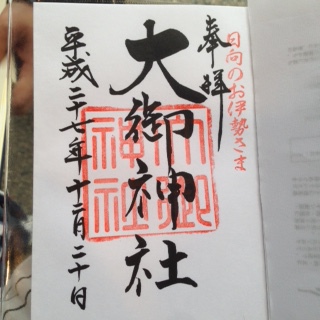 日向のお伊勢さま
奉拝
大御神社
大御
神社
平成二十七年十二月二十日